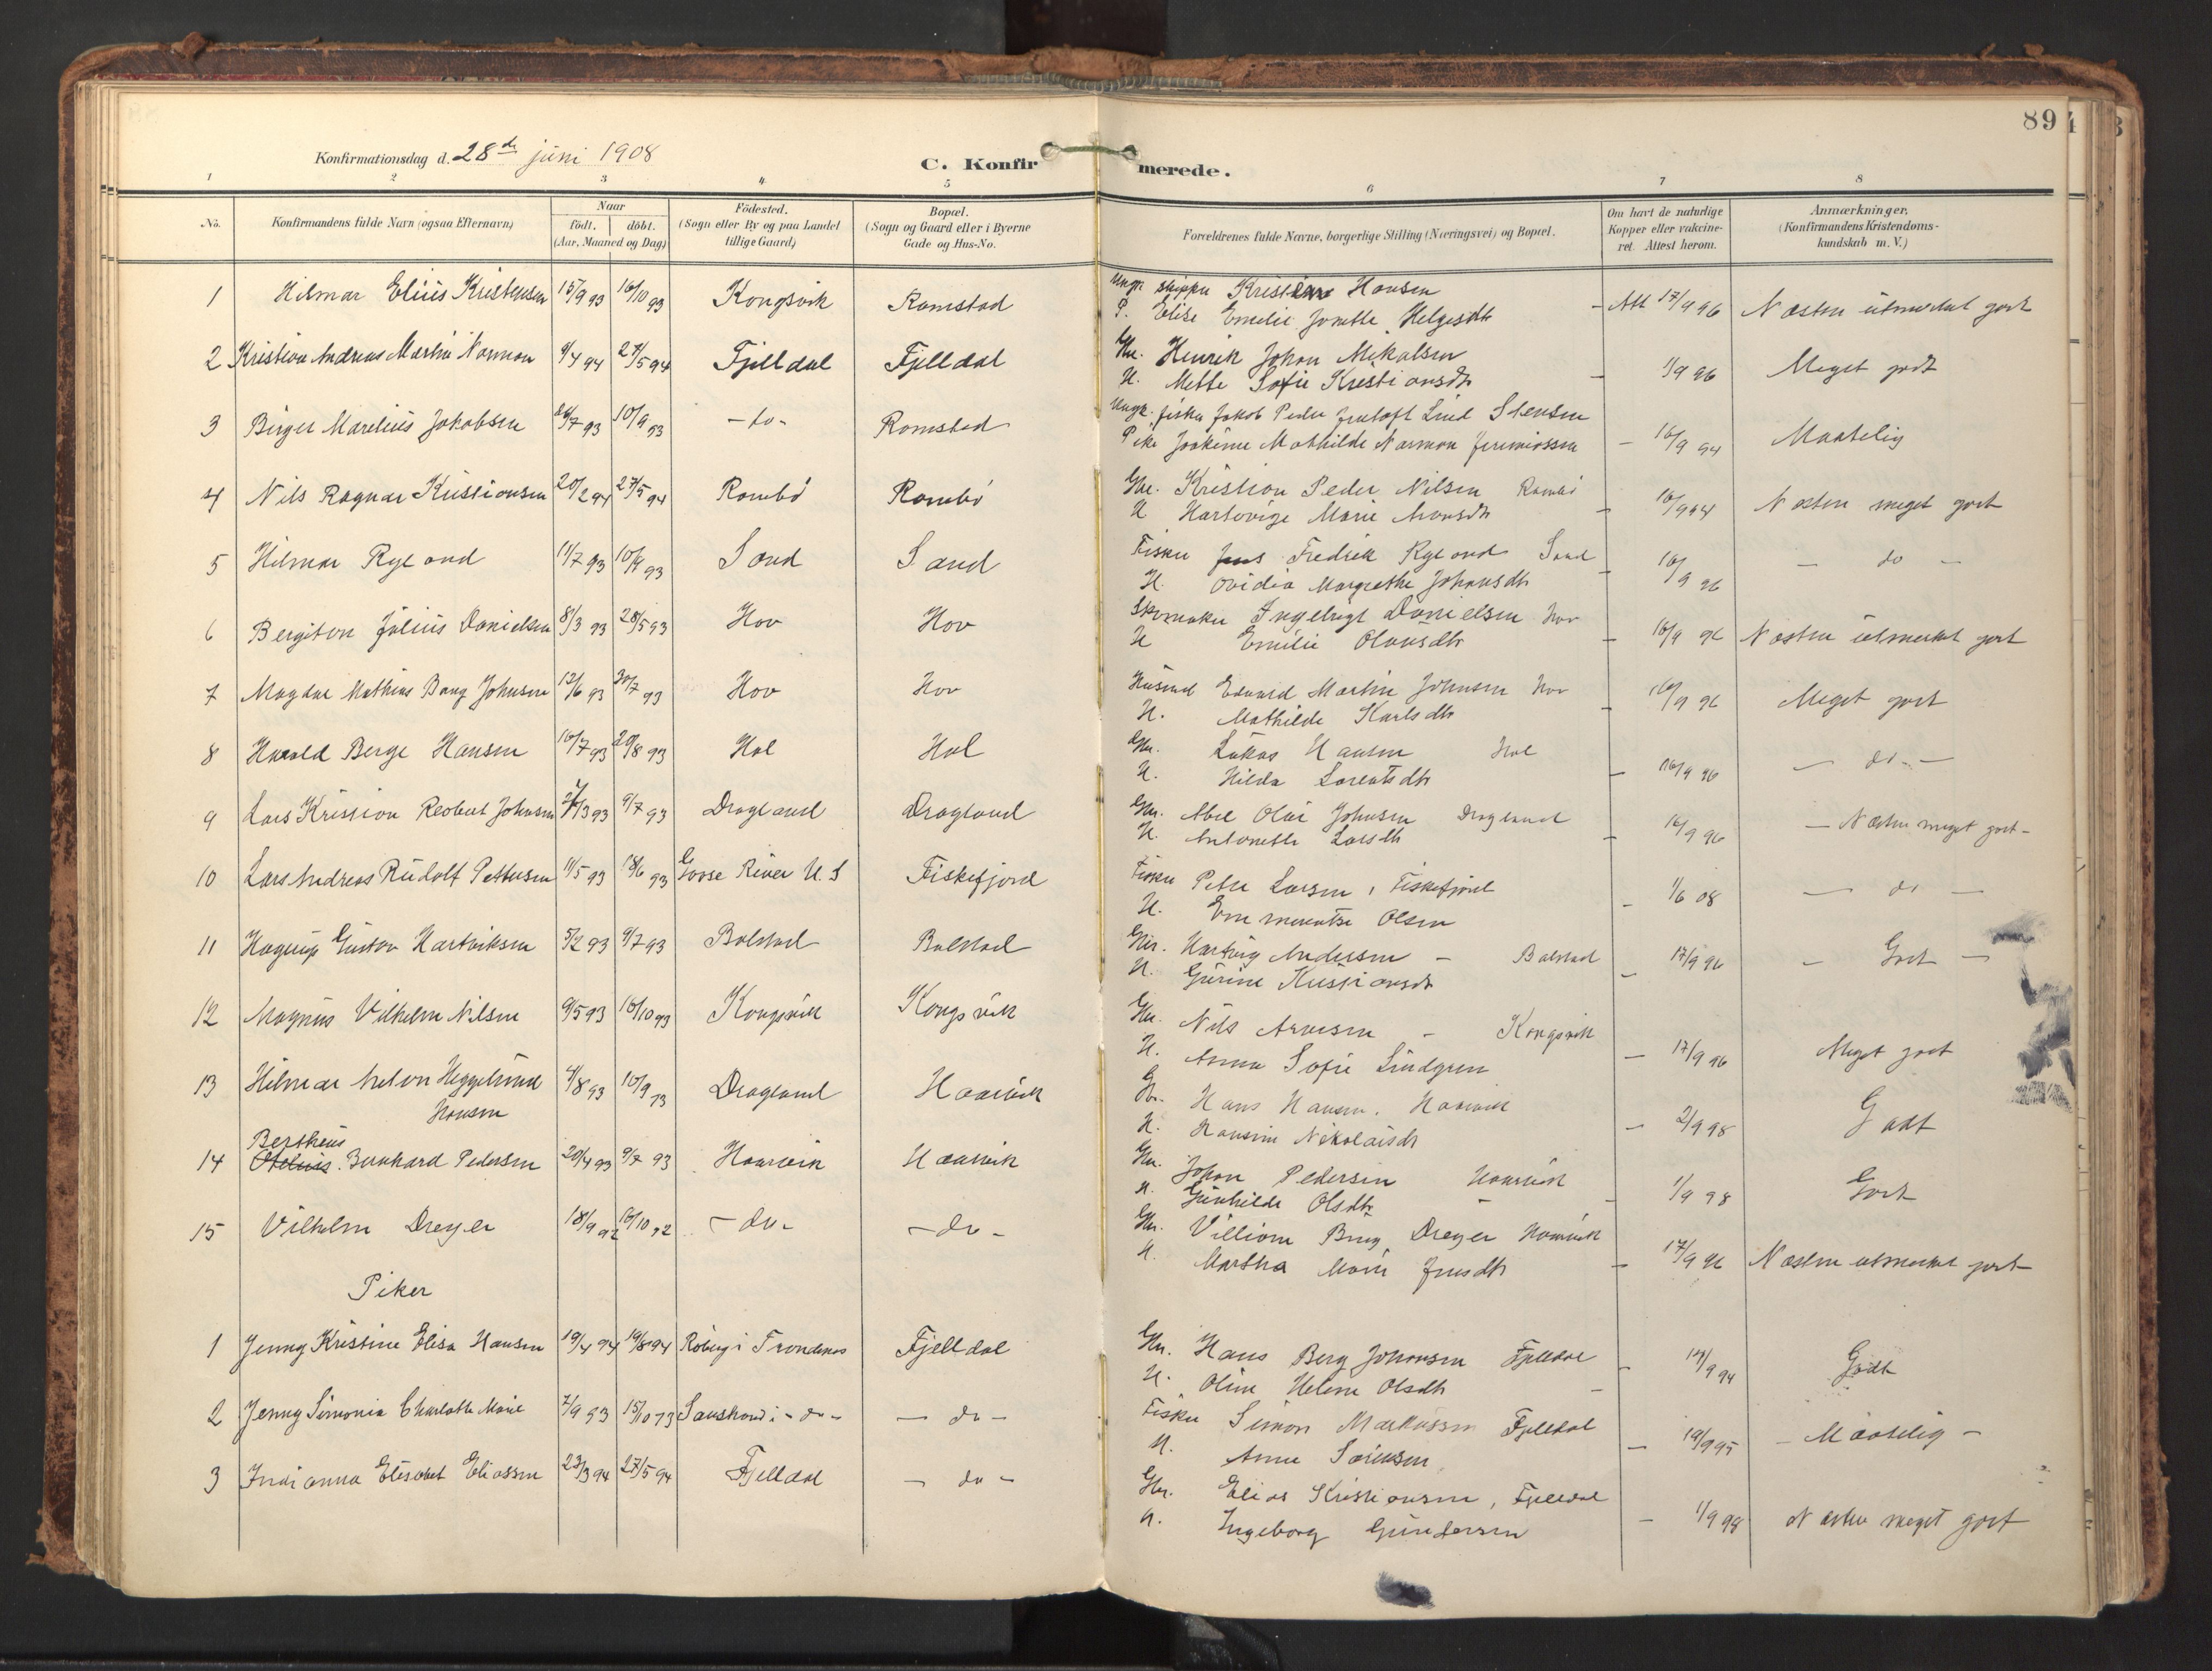 89
Konfirmationsdag d. 28de juni 1908
C. Konfirmerede.
1 2 3 4 5 6 7 8
No. Konfirmandens fulde Navn (ogsaa Efternavn) Naar født. døbt. (Aar, Maaned og Dag) Fødested. (Sogn eller By og paa Landet tillige Gaard) Bopæl. (Sogn og Gaard eller i Byerne Gade og Hus-No. Forældrenes fulde Navne, borgerlige Stilling (Næringsvei) og Bopæl. Om havt de naturlige Kopper eller vakcineret. Attest herom. Anmærkninger. (Konfirmandens Kristendomskundskab m. V.)
1 Hilmar Eliüs Kristensen 15/9 93 16/10 93 Kongsvik Ramstad Ungk. skipper Kristian Hansen
P. Elise Emelie Josette Helgesdtr - Att 17/9 96 Næsten utmerket godt
2 Kristian Andreas Martin Norman 9/4 94 27/5 94 Fjelldal Fjelldal Gbr. Henrik Johan Mikalsen
H. Mette Sofie Kristiansdtr - 1/9 96 Meget godt
3 Birger Marelius Jakobsen 26/7 93 10/9 93 - do - Ramstad Ungk. fisker Jakob Peder Lind Stensen
Pike Joakime Mathilde Norman Jeremiassen - 16/9 94 Maatelig
4 Nils Ragnar Kristiansen 20/2 94 27/5 94 Rambø Rambø Gbr. Kristian Peder Nilsen Rambø
H Hartvige Marie Aronsdtr - 16/9 94 Næsten meget godt
5 Hilmar Ryland 11/7 93 10/9 93 Sand Sand Fisker Jens Fredrik Ryland Sand
H. Ovidia Margrethe Johansdtr - 16/9 96 - do -
6 Bergiton Julius Danielsen 8/3 93 28/5 93 Hov Hov Skomaker Ingebrigt Danielsen Hov
H Emilie Olausdtr - 16/9 96 Næsten utmerket godt
7 Magdar Mathias Bang Johnsen 12/6 93 30/7 93 Hov Hov Husmd Edvard Martin Johnsen Hov
H. Mathilde Karlsdtr - 16/9 96 Meget godt
8 Harald Berge Hansen 16/7 93 20/8 93 Hol Hol Gbr. Lukas Hansen Hol
H. Hilda Lorentsdtr - 16/9 96 - do -
9 Lars Kristian Reobert Johnsen 27/3 93 9/7 93 Dragland Dragland Gbr. Abel Olai Johnsen Dragland
H. Antonette Larsdtr - 16/9 96 - Næsten meget godt -
10 Lars Andreas Rudolf Pettersen 11/5 93 18/6 93 Goose River U.S Fiskefjord Fisker Peter Larsen, Fiskefjord
H. Emmerentse Olsen - 1/6 08 - do -
11 Hagerup Gustav Hartviksen 5/2 93 9/7 93 Balstad Balstad Gbr. Hartvig Andersen - Balstad
H. Gurine Kristiansdtr - 17/9 96 - Godt -
12 Magnus Vilhelm Nilsen 9/5 93 16/10 93 Kongsvik Kongsvik Gbr. Nils Arnesen - Kongsvik
H. Anna Sofie Lindgren - 17/9 96 Meget godt
13 Hilmar Anton Heggelund Hansen 4/8 93 10/9 93 Dragland Haarvik Gbr. Hans Hansen. Haarvik
H. Hansine Nikolaisdtr - 2/9 98 Godt
14 Bertheus Bernhard Pedersen 20/4 93 9/7 93 Haarvik Haarvik Gbr. Johan Pedersen Haarvik
H. Gunhilde Olsdtr - 1/9 98 Godt
15 Vilhelm Dreyer 18/9 92 16/10 92 - do - - do - Gbr. Villiam Bing Dreyer Haarvik
H. Martha Marie Jensdtr - 17/9 96 Næsten utmerket godt
Piker
1 Jenny Kristine Elisa Hansen 19/4 94 19/8 94 Røberg i Trondenes Fjelldal Gbr. Hans Berg Johansen Fjelldal
H. Oline Helene Olsdtr - 14/9 94 Godt
2 Jenny Simonia Charlotte Marie 7/9 93 15/10 93 Sanstrand i - do - - do - Fisker Simon Markussen Fjelldal
H. Anne Sørensen - 19/9 95 - Maatelig -
3 Indianna Elisabet Eliassen 23/3 94 27/5 94 Fjelldal - do - Gbr. Elias Kristiansen, Fjelldal
H. Ingeborg Gundersen - 1/9 98 Næsten meget godt